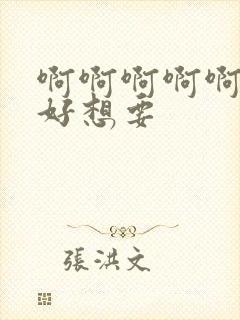 啊啊啊啊啊
好想要
張洪文